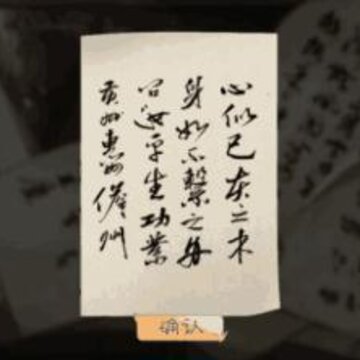 心似已灰之木
身如不繫之舟
问汝平生功業
黄州惠州儋州
确认